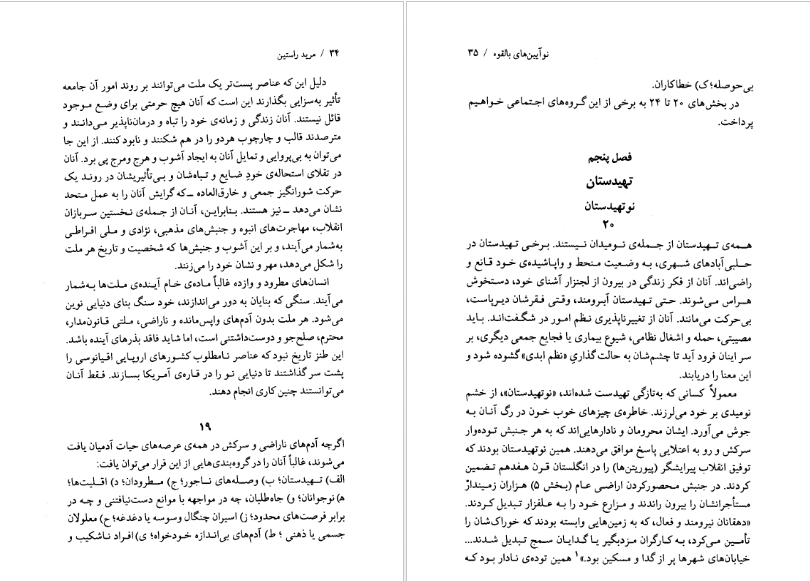 ۳۴ / مرید راستین
دلیل این که عناصر پست‌تر یک ملت می‌توانند بر روند امور آن جامعه
تأثیر به‌سزایی بگذارند این است که آنان هیچ حرمتی برای وضع موجود
قائل نیستند. آنان زندگی و زمانه‌ی خود را تباه و درمان‌ناپذیر می‌دانند و
مترصدند قالب و چارچوب هردو را در هم شکنند و نابود کنند. از این جا
می‌توان به بی‌پروایی و تمایل آنان به ایجاد آشوب و هرج ومرج پی برد. آنان
در تقلای استحاله‌ی خودِ ضایع و تباه‌شان و بی‌تأثیریشان در روند یک
حرکت شورانگیز جمعی و خارق‌العاده ــ که گرایش آنان را به عمل متحد
نشان می‌دهد ــ نیز هستند. بنابراین، آنان از جمله‌ی نخستین سربازان
انقلاب، مهاجرت‌های انبوه و جنبش‌های مذهبی، نژادی و ملی افراطی
به‌شمار می‌آیند، و بر این آشوب و جنبش‌ها که شخصیت و تاریخ هر ملت
را شکل می‌دهد، مهر و نشان خود را می‌زنند.
انسان‌های مطرود و وازده غالباً ماده‌ی خام آینده‌ی ملت‌ها به‌شمار
می‌آیند. سنگی که بنایان به دور می‌اندازند، خود سنگ بنای دنیایی نوین
می‌شود. هر ملت بدون آدم‌های واپس‌مانده و ناراضی، ملتی قانون‌مدار،
محترم، صلح‌جو و دوست‌داشتنی است، اما شاید فاقد بذرهای آینده باشد.
این طنز تاریخ نبود که عناصر نامطلوب کشورهای اروپایی اقیانوسی را
پشت سر گذاشتند تا دنیایی نو را در قاره‌ی آمریکا بسازند. فقط آنان
می‌توانستند چنین کاری انجام دهند.
۱۹
اگرچه آدم‌های ناراضی و سرکش در همه‌ی عرصه‌های حیات آدمیان یافت
می‌شوند، غالباً آنان را در گروه‌بندی‌هایی از این قرار می‌توان یافت:
الف) تهیدستان؛ ب) وصله‌های ناجور؛ ج) مطرودان؛ د) اقلیت‌ها؛
ه) نوجوانان؛ و) جاه‌طلبان، چه در مواجهه با موانع دست‌نیافتنی و چه در
برابر فرصت‌های محدود؛ ز) اسیران چنگال وسوسه یا دغدغه؛ ح) معلولان
جسمی یا ذهنی ؛ ط) آدم‌های بی‌اندازه خودخواه؛ ی) افراد ناشکیب و
نوآیین‌های بالقوه / ۳۵
بی‌حوصله؛ ک) خطاکاران.
در بخش‌های ۲۰ تا ۲۴ به برخی از این گروه‌های اجتماعی خواهیم
پرداخت.
فصل پنجم
تهیدستان
نوتهیدستان
۲۰
همه‌ی تهیدستان از جمله‌ی نومیدان نیستند. برخی تهیدستان در
حلبی‌آبادهای شهری، به وضعیت منحط و واپاشیده‌ی خود قانع و
راضی‌اند. آنان از فکر زندگی در بیرون از لجنزار آشنای خود، دستخوش
هراس می‌شوند. حتی تهیدستان آبرومند، وقتی فقرشان دیرپاست،
بی‌حرکت می‌مانند. آنان از تغییرناپذیری نظم امور در شگفت‌اند. باید
مصیبتی، حمله و اشغال نظامی، شیوع بیماری یا فجایع جمعی دیگری، بر
سر اینان فرود آید تا چشم‌شان به حالت گذاریِ «نظم ابدی» گشوده شود و
این معنا را دریابند.
معمولاً کسانی که به‌تازگی تهیدست شده‌اند، «نوتهیدستان»، از خشم
نومیدی بر خود می‌لرزند. خاطره‌ی چیزهای خوب خون در رگ آنان به
جوش می‌آورد. ایشان محرومان و نادارهایی‌اند که به هر جنبش توده‌وار
سرکش و رو به اعتلایی پاسخ موافق می‌دهند. همین نوتهیدستان بودند که
توفیق انقلاب پیرایشگر (پیوریتن‌ها) را در انگلستان قرن هفدهم تضمین
کردند. در جنبش محصورکردن اراضی عام (بخش ۵) هزاران زمیندارْ
مستأجرانشان را بیرون راندند و مزارع خود را به علفزار تبدیل کردند.
«دهقانان نیرومند و فعال، که به زمین‌هایی وابسته بودند که خوراک‌شان را
تأمین می‌کرد، به کارگران مزدبگیر یا گدایان سمج تبدیل شدند...
خیابان‌های شهرها پر از گدا و مسکین بود.»۱ همین توده‌ی نادار بود که